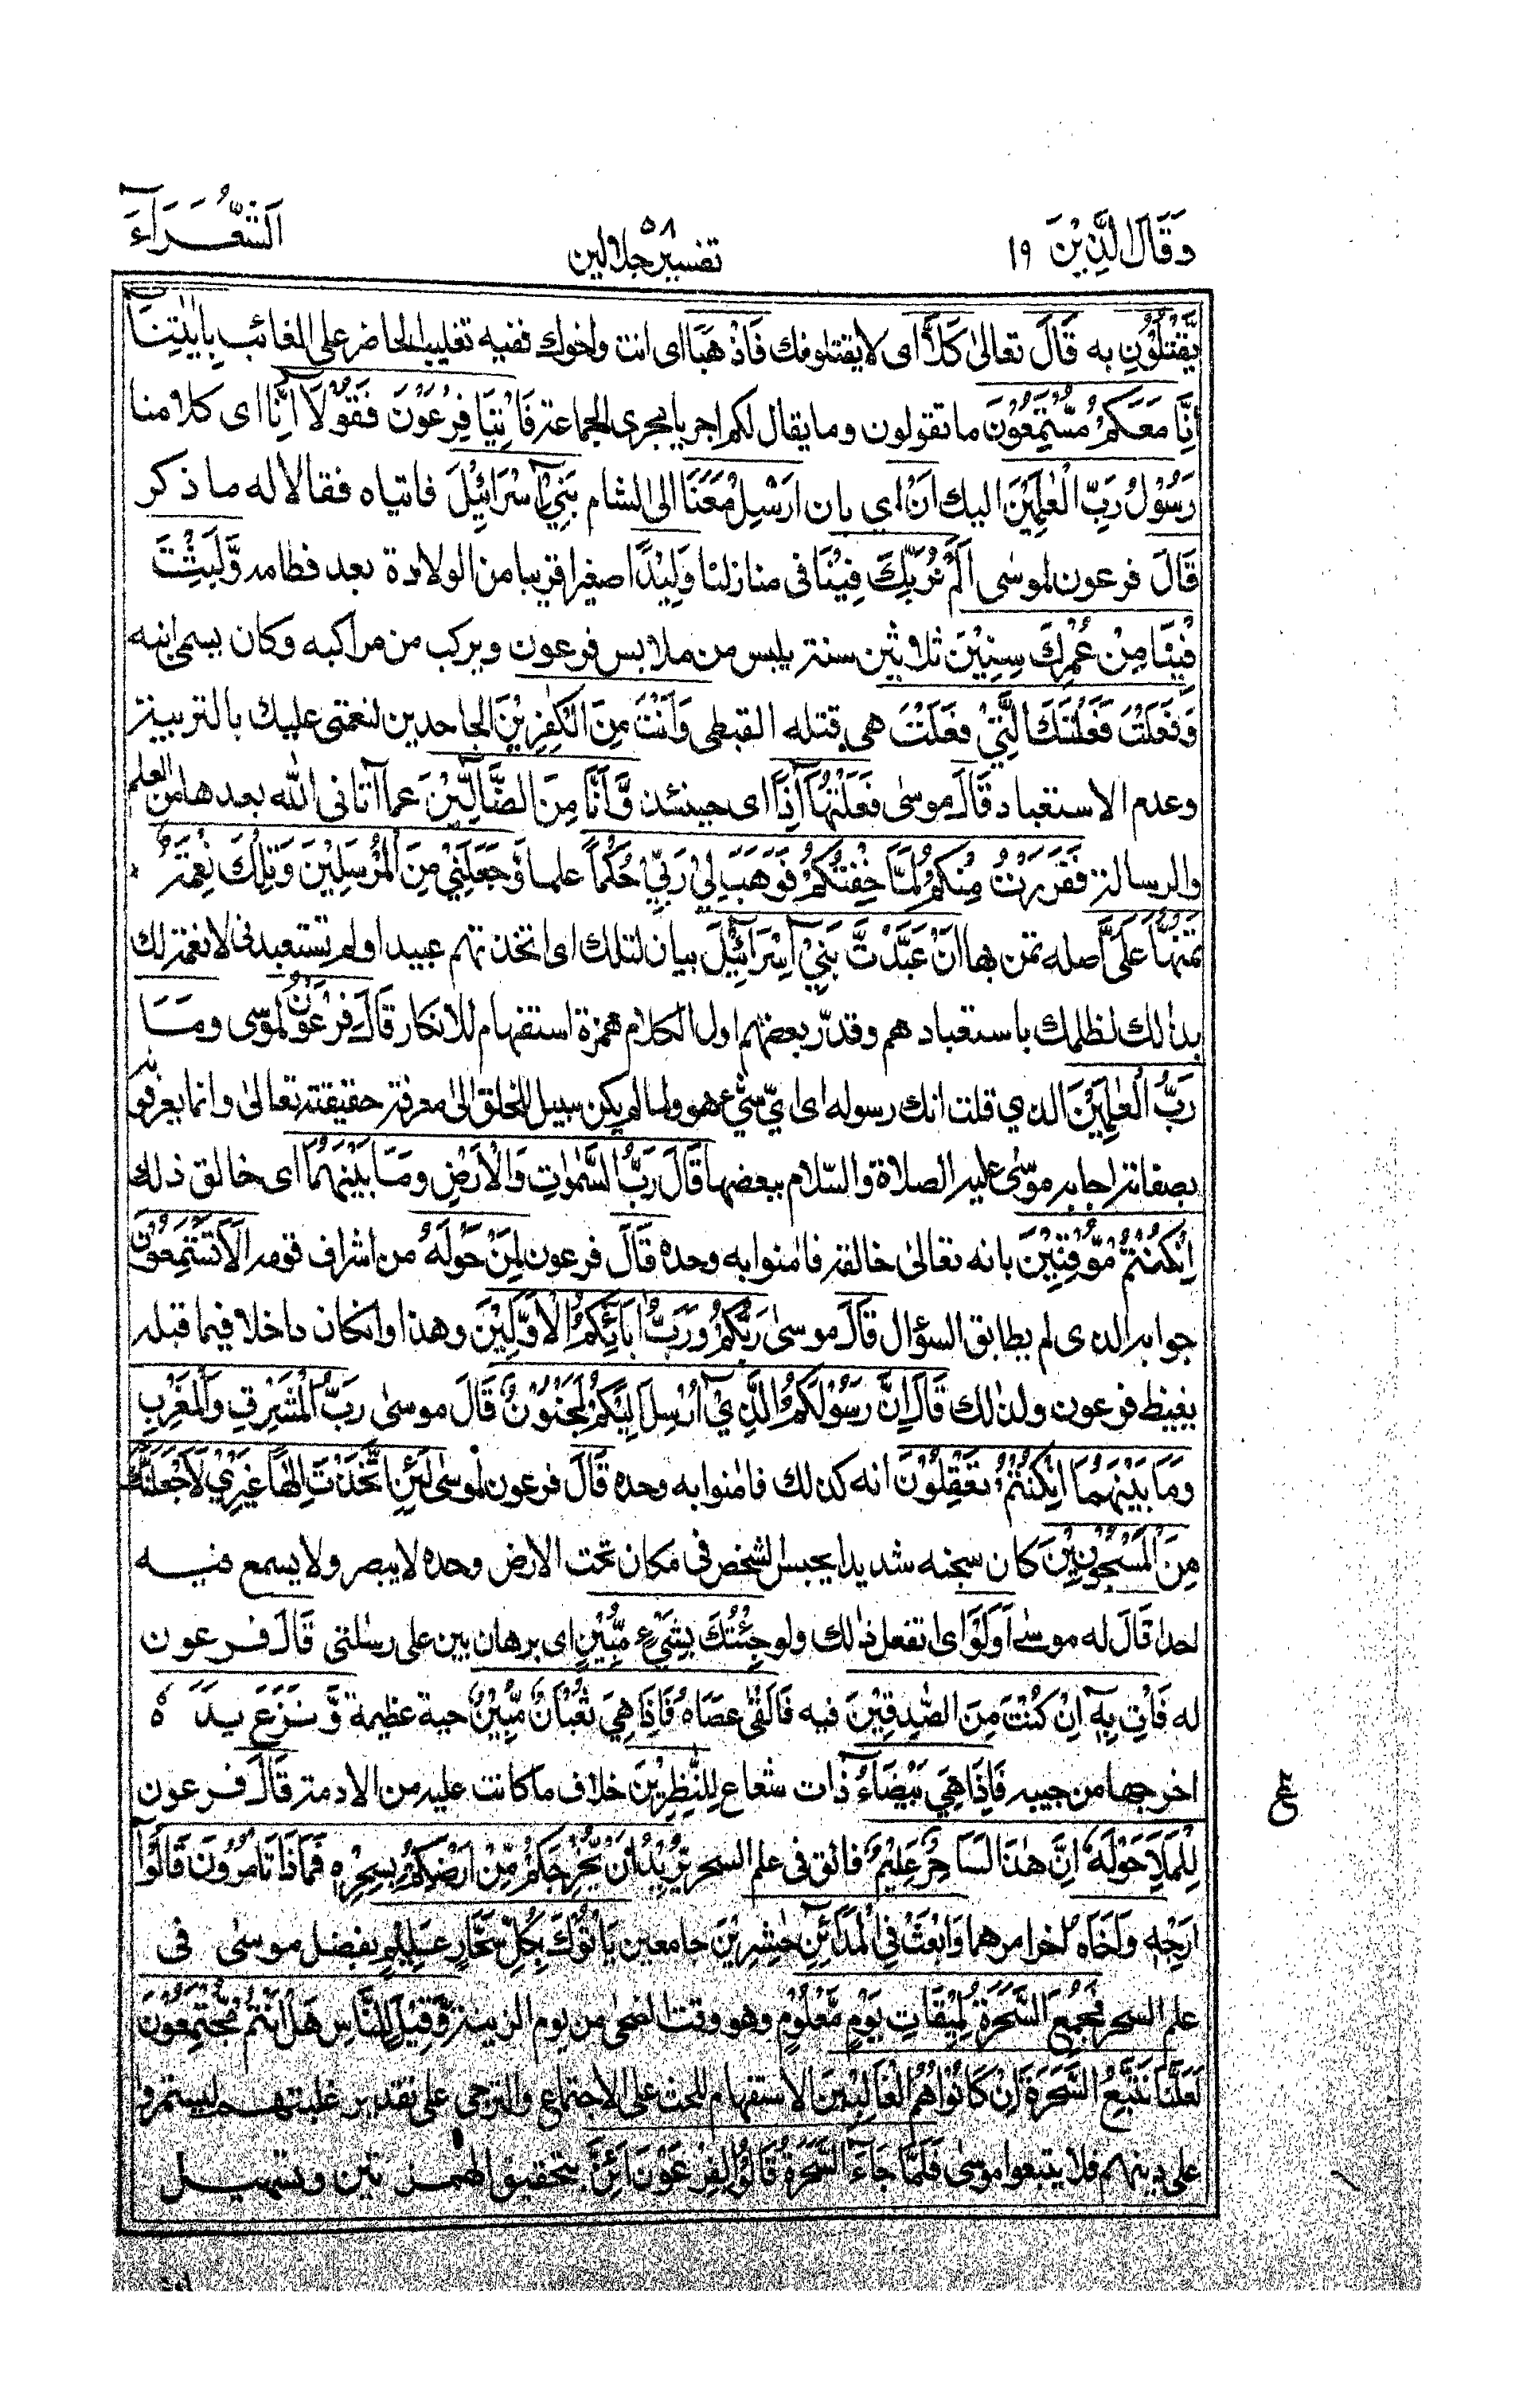 وَقَالَ الَّذِيْنَ ١٩
٥٨
تفسير جلالين
اَلشُّعَرَآءَ
يَّقْتُلُوْنِ به قَالَ تعالىٰ كَلَّا اى لا يقتلونك فَاذْهَبَا اى انت واخوك ففيه تغليب الحاضر على الغائب بِاٰيٰتِنَآ
اِنَّا مَعَكُمْ مُّسْتَمِعُوْنَ ما تقولون وما يقال لكم اجريا مجرى الجماعة فَاْتِيَا فِرْعَوْنَ فَقُوْلَآ اِنَّا اى كلا منا
رَسُوْلُ رَبِّ الْعٰلَمِيْنَ اليك اَنْ اى بان اَرْسِلْ مَعَنَا الى الشام بَنِيْٓ اِسْرَآئِيْلَ فاتياه فقالا له ما ذكر
قَالَ فرعون لموسى اَلَمْ نُرَبِّكَ فِيْنَا فى منازلنا وَلِيْدًا صغيرا قريبا من الولادة بعد فطامه وَّلَبِثْتَ
فِيْنَا مِنْ عُمُرِكَ سِنِيْنَ ثلاثين سنة يلبس من ملابس فرعون ويركب من مراكبه وكان يسمى ابنه
وَفَعَلْتَ فَعْلَتَكَ الَّتِيْ فَعَلْتَ هى قتله القبطى وَاَنْتَ مِنَ الْكٰفِرِيْنَ الجاحدين لنعمتى عليك بالتربية
وعدم الاستعباد قَالَ موسىٰ فَعَلْتُهَآ اِذًا اى حينئذ وَّاَنَا مِنَ الضَّآلِّيْنَ عما آتانى الله بعدها من العلم
والرسالة فَفَرَرْتُ مِنْكُمْ لَمَّا خِفْتُكُمْ فَوَهَبَ لِيْ رَبِّيْ حُكْمًا علما وَّجَعَلَنِيْ مِنَ الْمُرْسَلِيْنَ وَتِلْكَ نِعْمَةٌ
تَمُنُّهَا عَلَيَّ اصله تمن بها اَنْ عَبَّدْتَّ بَنِيْٓ اِسْرَآئِيْلَ بيان لتلك اى اتخذتهم عبيدا ولم تستعبدنى لا نعمة لك
بذٰلك لظلمك باستعبادهم وقدّر بعضهم اول الكلام همزة استفهام للانكار قَالَ فِرْعَوْنُ لموسى وَمَا
رَبُّ الْعٰلَمِيْنَ الذي قلت انك رسوله اى ايّ شىء هو ولما لم يكن سبيل للخلق الىٰ معرفة حقيقته تعالىٰ وانما يعرفونه
بصفاته اجابه موسىٰ عليه الصلاة والسّلام ببعضها قَالَ رَبُّ السَّمٰوٰتِ وَالْاَرْضِ وَمَا بَيْنَهُمَا اى خالق ذلك
اِنْ كُنْتُمْ مُّوْقِنِيْنَ بانه تعالىٰ خالقه فاٰمنوا به وحده قَالَ فرعون لِمَنْ حَوْلَهٗ من اشراف قومه اَلَا تَسْتَمِعُوْنَ
جوابه الذى لم يطابق السؤال قَالَ موسىٰ رَبُّكُمْ وَرَبُّ اٰبَآئِكُمُ الْاَوَّلِيْنَ وهذا وان كان داخلا فيما قبله
يغيظ فرعون ولذٰلك قَالَ اِنَّ رَسُوْلَكُمُ الَّذِيْٓ اُرْسِلَ اِلَيْكُمْ لَمَجْنُوْنٌ قَالَ موسىٰ رَبُّ الْمَشْرِقِ وَالْمَغْرِبِ
وَمَا بَيْنَهُمَا اِنْ كُنْتُمْ تَعْقِلُوْنَ انه كذلك فاٰمنوا به وحده قَالَ فرعون لموسىٰ لَئِنِ اتَّخَذْتَ اِلٰهًا غَيْرِيْ لَاَجْعَلَنَّكَ
مِنَ الْمَسْجُوْنِيْنَ كان سجنه شديدا يحبس الشخص فى مكان تحت الارض وحده لا يبصر ولا يسمع فيه
احدا قَالَ له موسىٰ اَوَلَوْ اى اتفعل ذٰلك ولو جِئْتُكَ بِشَيْءٍ مُّبِيْنٍ اى برهان بين على رسالتى قَالَ فرعون
له فَاْتِ بِهٖٓ اِنْ كُنْتَ مِنَ الصّٰدِقِيْنَ فيه فَاَلْقٰى عَصَاهُ فَاِذَا هِيَ ثُعْبَانٌ مُّبِيْنٌ حية عظيمة وَّنَزَعَ يَدَهٗ
اخرجها من جيبه فَاِذَا هِيَ بَيْضَآءُ ذات شعاع لِلنّٰظِرِيْنَ خلاف ما كانت عليه من الادمة قَالَ فرعون
لِلْمَلَاِ حَوْلَهٗٓ اِنَّ هٰذَا لَسَاحِرٌ عَلِيْمٌ فائق فى علم السحر يُّرِيْدُ اَنْ يُّخْرِجَكُمْ مِّنْ اَرْضِكُمْ بِسِحْرِهٖ فَمَاذَا تَاْمُرُوْنَ قَالُوْٓا
اَرْجِهْ وَاَخَاهُ اخر امرهما وَابْعَثْ فِي الْمَدَآئِنِ حٰشِرِيْنَ جامعين يَاْتُوْكَ بِكُلِّ سَحَّارٍ عَلِيْمٍ يفضل موسىٰ فى
علم السحر فَجُمِعَ السَّحَرَةُ لِمِيْقَاتِ يَوْمٍ مَّعْلُوْمٍ وهو وقت الضحى من يوم الزينة وَّقِيْلَ لِلنَّاسِ هَلْ اَنْتُمْ مُّجْتَمِعُوْنَ
لَعَلَّنَا نَتَّبِعُ السَّحَرَةَ اِنْ كَانُوْا هُمُ الْغَالِبِيْنَ الاستفهام للحث على الاجتماع والترجى على تقدير غلبتهم ليستمروا
على دينهم فلا يتبعوا موسى فَلَمَّا جَآءَ السَّحَرَةُ قَالُوْا لِفِرْعَوْنَ اَئِنَّ بتحقيق الهمزتين وتسهيل
ع